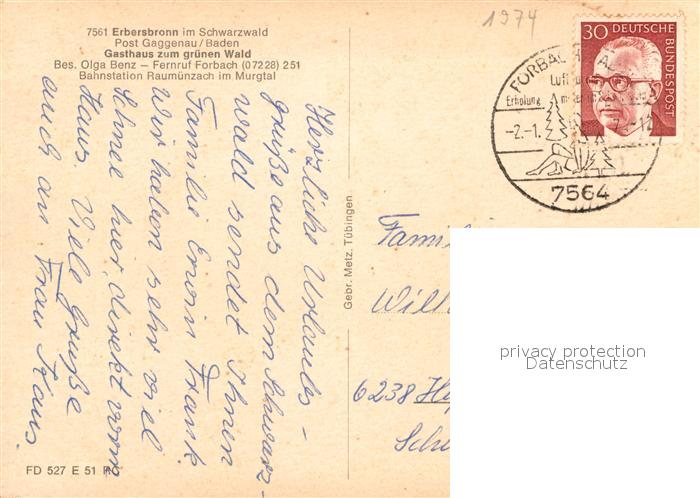 7561 Erbersbronn im Schwarzwald
Post Gaggenau/Baden
Gasthaus zum grünen Wald
Bes. Olga Benz – Fernruf Forbach (07228) 251
Bahnstation Raumünzach im Murgtal
1974
30
DEUTSCHE
BUNDESPOST
FORBACH
Luft
Erholung
-2.-1.
7564
Herzliche Urlaubs-
grüße aus dem Schwarz-
wald sendet Ihnen
Familie Erwin Frank
Wir haben sehr viel
Schnee hier, direkt vorm
Haus. Viele Grüße
auch an Frau Haus.
Gebr. Metz, Tübingen
Famil
Wilh
6238
Schu
privacy protection
Datenschutz
FD 527 E 51 RC